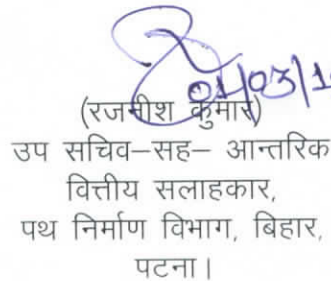 01/03/1
(रजनीश कुमार)
उप सचिव–सह– आन्तरिक
वित्तीय सलाहकार,
पथ निर्माण विभाग, बिहार,
पटना।